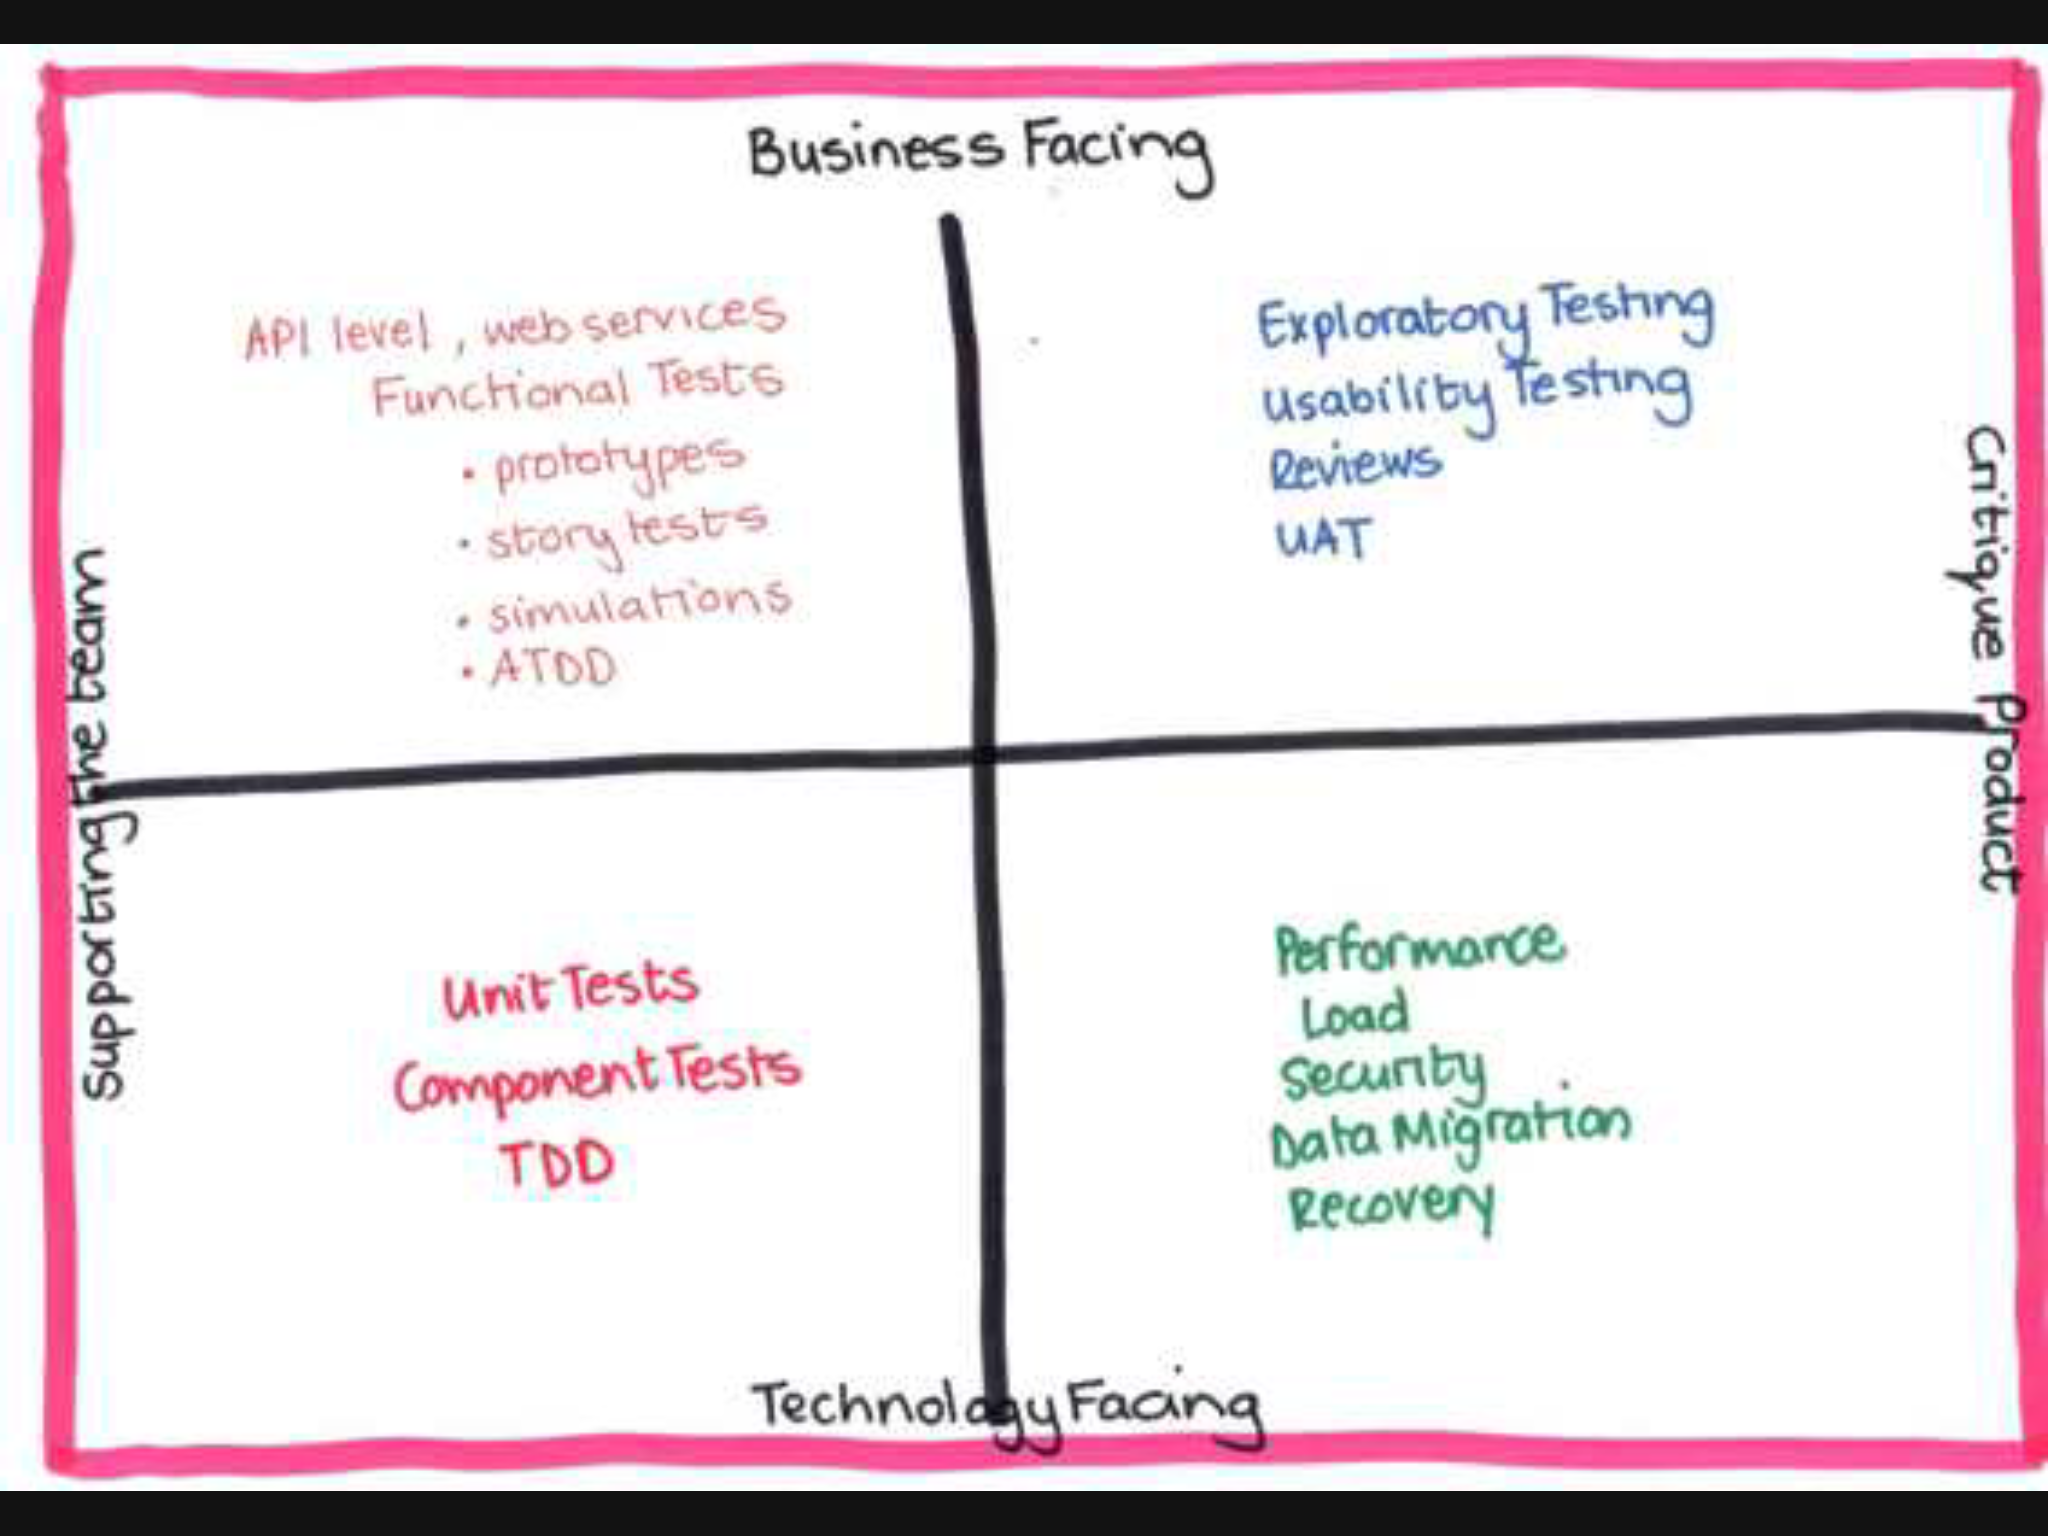 Business Facing
API level, web services
Functional Tests
• prototypes
• story tests
• simulations
• ATDD
Exploratory Testing
Usability Testing
Reviews
UAT
Supporting the team
Critique Product
Unit Tests
Component Tests
TDD
Performance
Load
Security
Data Migration
Recovery
Technology Facing